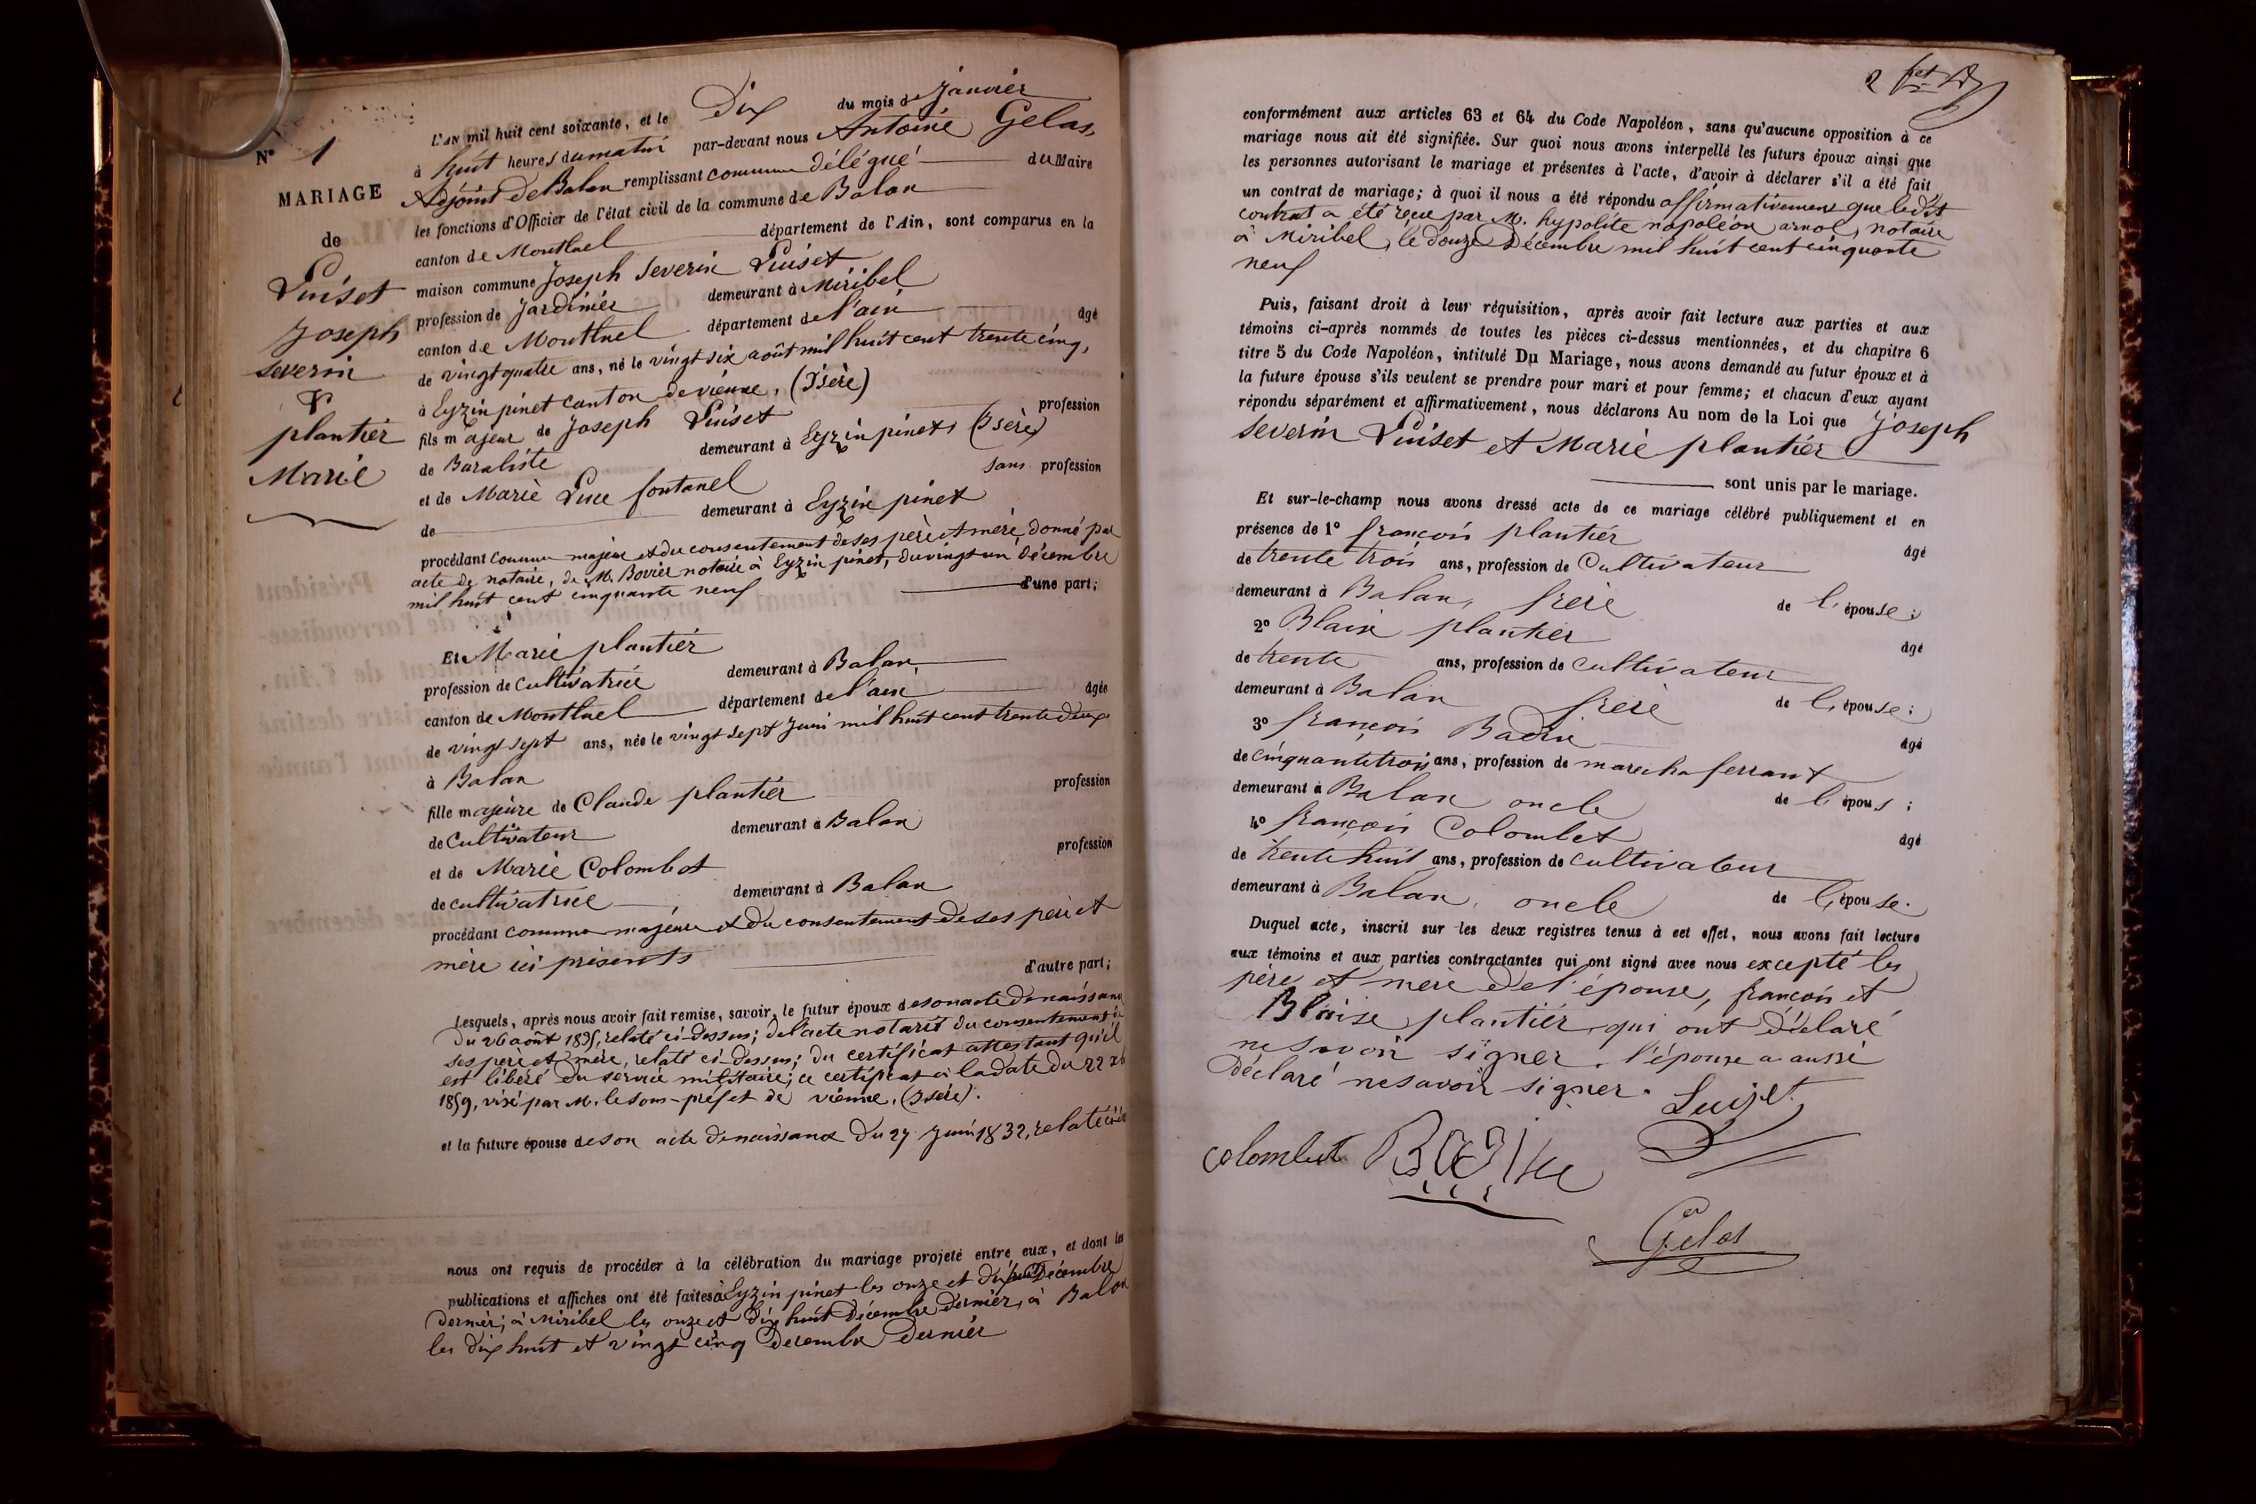 N° 1
MARIAGE
de
Luiset
Joseph
severin
&
plantier
Marie
L'AN mil huit cent soixante, et le Dix du mois de Janvier
à huit heures du matin par-devant nous Antoine Gelas,
Adjoint de Balan remplissant comme délégué du Maire
les fonctions d'Officier de l'état civil de la commune de Balan
canton de Montluel département de l'Ain, sont comparus en la
maison commune Joseph Severin Luiset
profession de Jardinier demeurant à Miribel
canton de Montluel département de l'ain âgé
de vingt quatre ans, né le vingt six août mil huit cent trente cinq,
à Eyzin pinet canton de vienne, (Isère)
fils majeur de Joseph Luiset profession
de Buraliste demeurant à Eyzin pinet, (Isère)
et de Marie Luce fontanel sans profession
de demeurant à Eyzin pinet
procédant comme majeur et du consentement de ses père et mère, donné par
acte de notaire, de M. Bovier notaire à Eyzin pinet, du vingt un décembre
mil huit cent cinquante neuf d'une part;
Et Marie plantier
profession de cultivatrice demeurant à Balan
canton de Montluel département de l'ain âgée
de vingt sept ans, née le vingt sept Juin mil huit cent trente deux
à Balan
fille majeure de Claude plantier profession
de Cultivateur demeurant à Balan
et de Marie Colombet profession
de cultivatrice demeurant à Balan
procédant comme majeure et du consentement de ses père et
mère ici présents d'autre part;
Lesquels, après nous avoir fait remise, savoir, le futur époux de son acte de naissance
du 26 août 1835, relaté ci-dessus; de l'acte notarié du consentement de
ses père et mère, relaté ci-dessus; du certificat attestant qu'il
est libéré du service militaire; ce certificat à la date du 22 xb
1859, visé par M. le sous-préfet de vienne, (Isère).
et la future épouse de son acte de naissance du 27 Juin 1832, relaté
nous ont requis de procéder à la célébration du mariage projeté entre eux, et dont les
publications et affiches ont été faites à Eyzin pinet les onze et dix huit Décembre
dernier; à Miribel les onze et dix huit Décembre dernier, à Balan
les dix huit et vingt cinq Décembre dernier
2
conformément aux articles 63 et 64 du Code Napoléon, sans qu'aucune opposition à ce
mariage nous ait été signifiée. Sur quoi nous avons interpellé les futurs époux ainsi que
les personnes autorisant le mariage et présentes à l'acte, d'avoir à déclarer s'il a été fait
un contrat de mariage; à quoi il nous a été répondu affirmativement que ledit
contrat a été reçu par M. hypolite napoléon arnol, notaire
à Miribel, le douze Décembre mil huit cent cinquante
neuf
Puis, faisant droit à leur réquisition, après avoir fait lecture aux parties et aux
témoins ci-après nommés de toutes les pièces ci-dessus mentionnées, et du chapitre 6
titre 5 du Code Napoléon, intitulé Du Mariage, nous avons demandé au futur époux et à
la future épouse s'ils veulent se prendre pour mari et pour femme; et chacun d'eux ayant
répondu séparément et affirmativement, nous déclarons Au nom de la Loi que Joseph
Severin Luiset et Marie plantier
sont unis par le mariage.
Et sur-le-champ nous avons dressé acte de ce mariage célébré publiquement et en
présence de 1° françois plantier âgé
de trente trois ans, profession de Cultivateur
demeurant à Balan, frère de l'épouse;
2° Blaise plantier âgé
de trente ans, profession de cultivateur
demeurant à Balan frère de l'épouse;
3° françois Badin âgé
de cinquante trois ans, profession de marechal ferrant
demeurant à Balan oncle de l'épous;
4° françois Colombet âgé
de trente huit ans, profession de cultivateur
demeurant à Balan, oncle de l'épouse.
Duquel acte, inscrit sur les deux registres tenus à cet effet, nous avons fait lecture
aux témoins et aux parties contractantes qui ont signé avec nous excepté les
père et mère de l'épouse, françois et
Blaise plantier, qui ont déclaré
ne savoir signer. l'épouse a aussi
déclaré ne savoir signer. Luizet
colombet Badin
Gelas